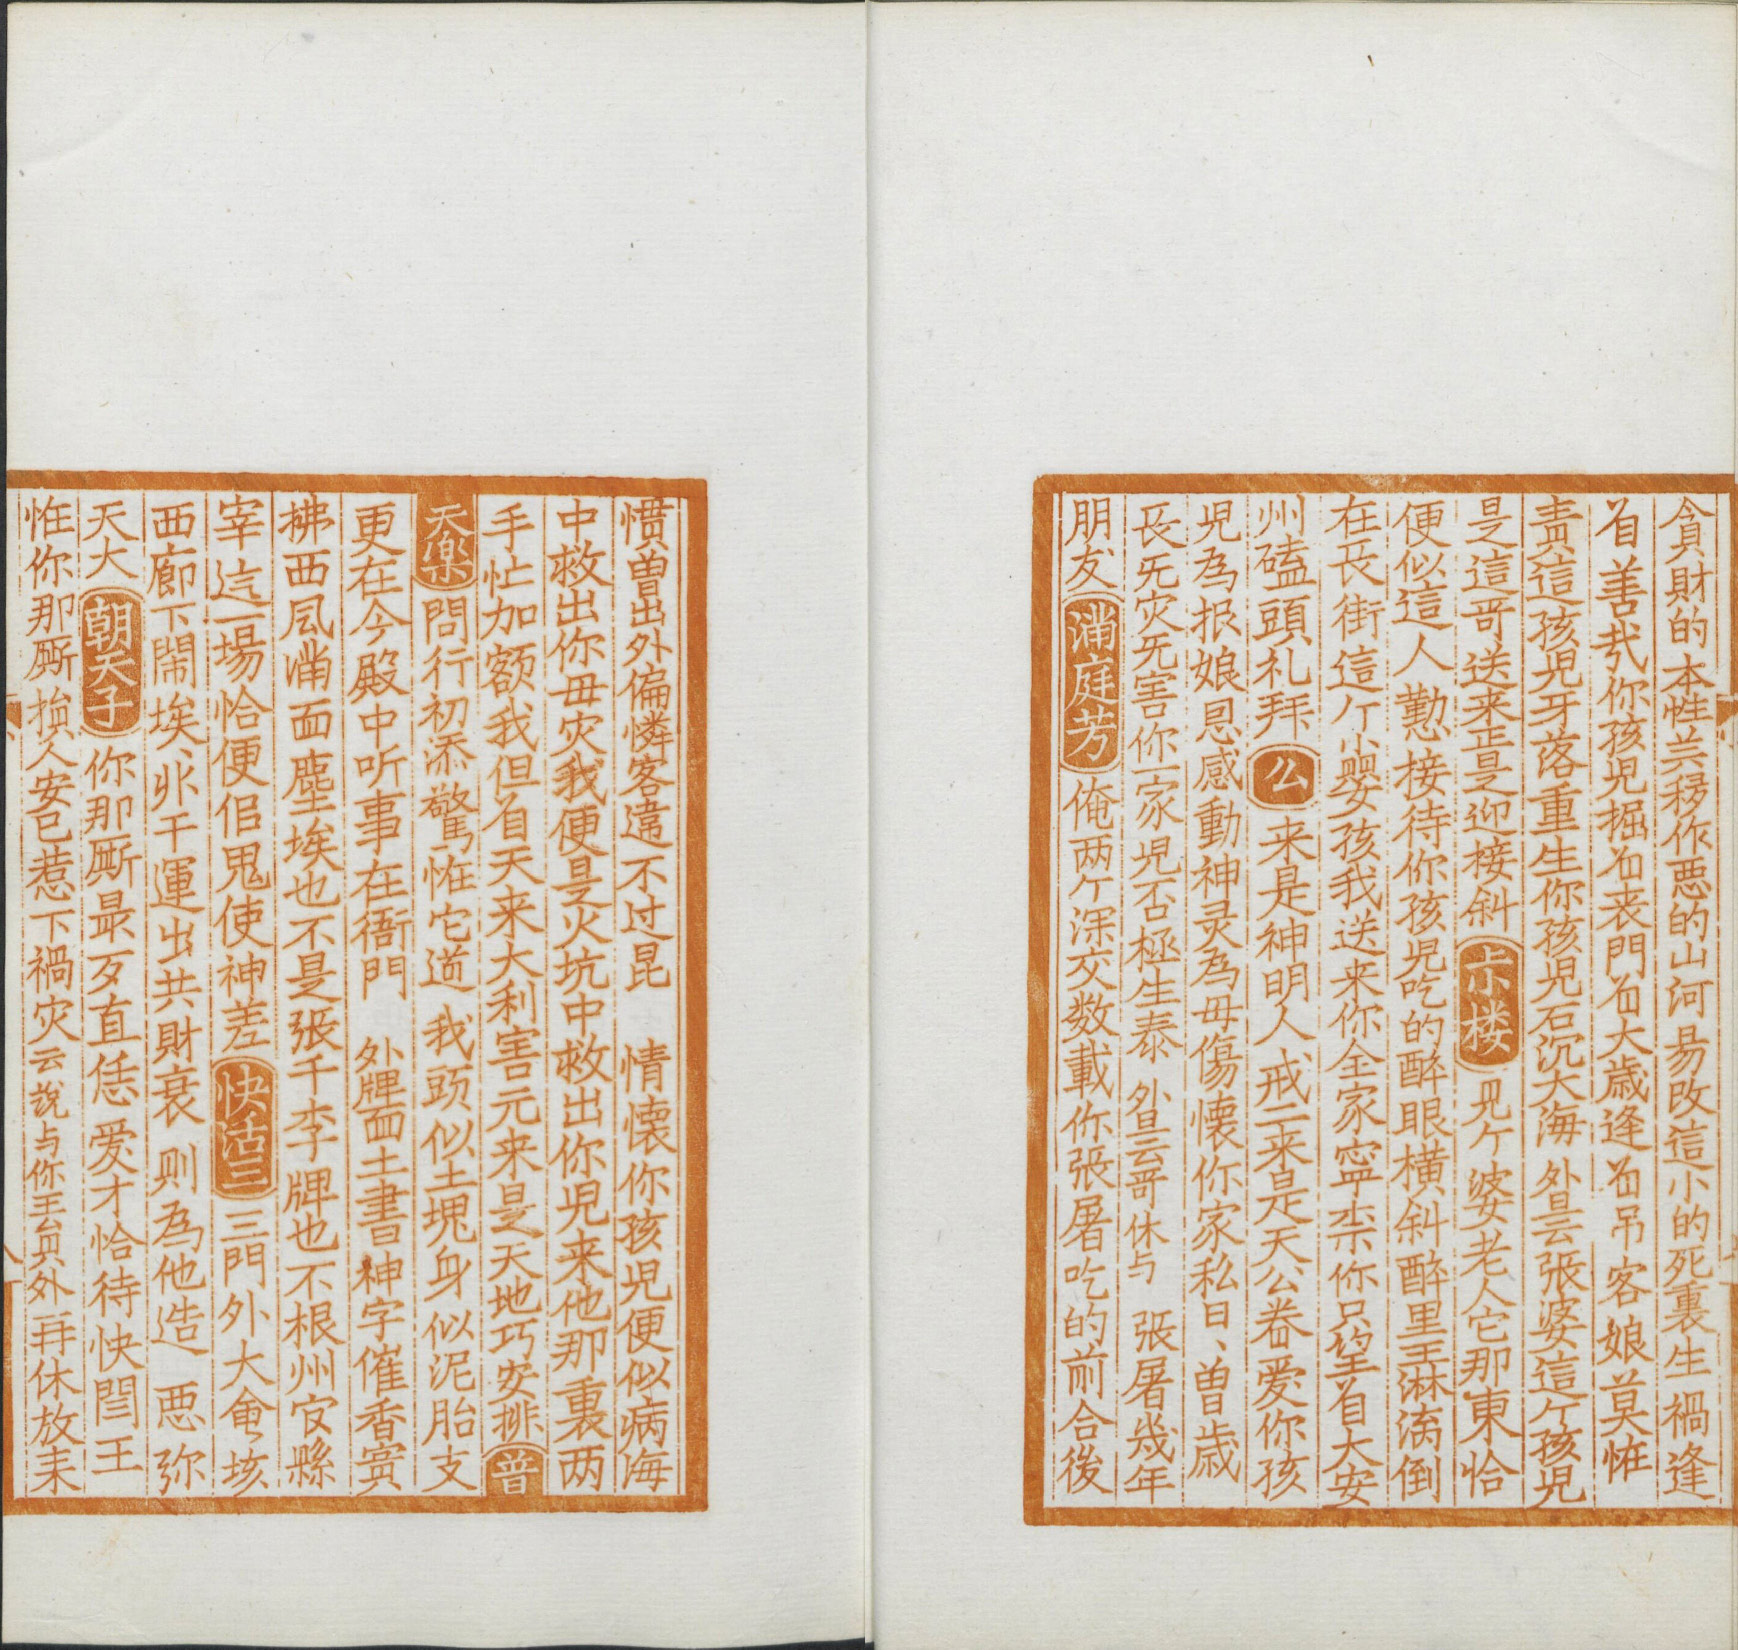 貪財的本性兰移作悪的山河易改這小的死裏生禍逢
省善㢤你孩児掘㕛丧門㕛大歳逢㕛吊客娘莫恠
責這孩児牙落重生你孩児石沉大海外旦云張婆這亇孩児
是這哥送来正是迎接斜上小楼見亇婆老人它那東恰
便似這人懃接待你孩児吃的醉眼横斜醉里王淋漓倒
在長街這亇小嬰孩我送来你全家寧奈你只望着大安
州磕頭礼拜么来是神明人戒二来是天公眷愛你孩
児為报娘恩感動神灵為毋傷懐你家私日〻曽歳
長旡灾旡害你一家児否極生泰外旦云哥休与張屠幾年
朋友满庭芳俺两亇深交数載你張屠吃的前合後
惯曽出外偏憐客違不过昆情懐你孩児便似病海
中救出你毋灾我便是火坑中救出你児来他那裏两
手忙加额我但省天来大利害元来是天地巧安排普
天樂問行初添驚恠它道我頭似土塊身似泥胎支
更在今殿中听事在衙門外牌面上書神字催香寅
拂西風满面塵埃也不是張千李牌也不根州官縣
宰這一場恰便佀鬼使神差快活三三門外大會垓
西廊下鬧埃〻非干運出共財衰則為他造悪弥
天大朝天子你那厮最歹直恁爱才恰待快閆王
恠你那厮損人安己惹下禍灾云説与你王員外一再休放来